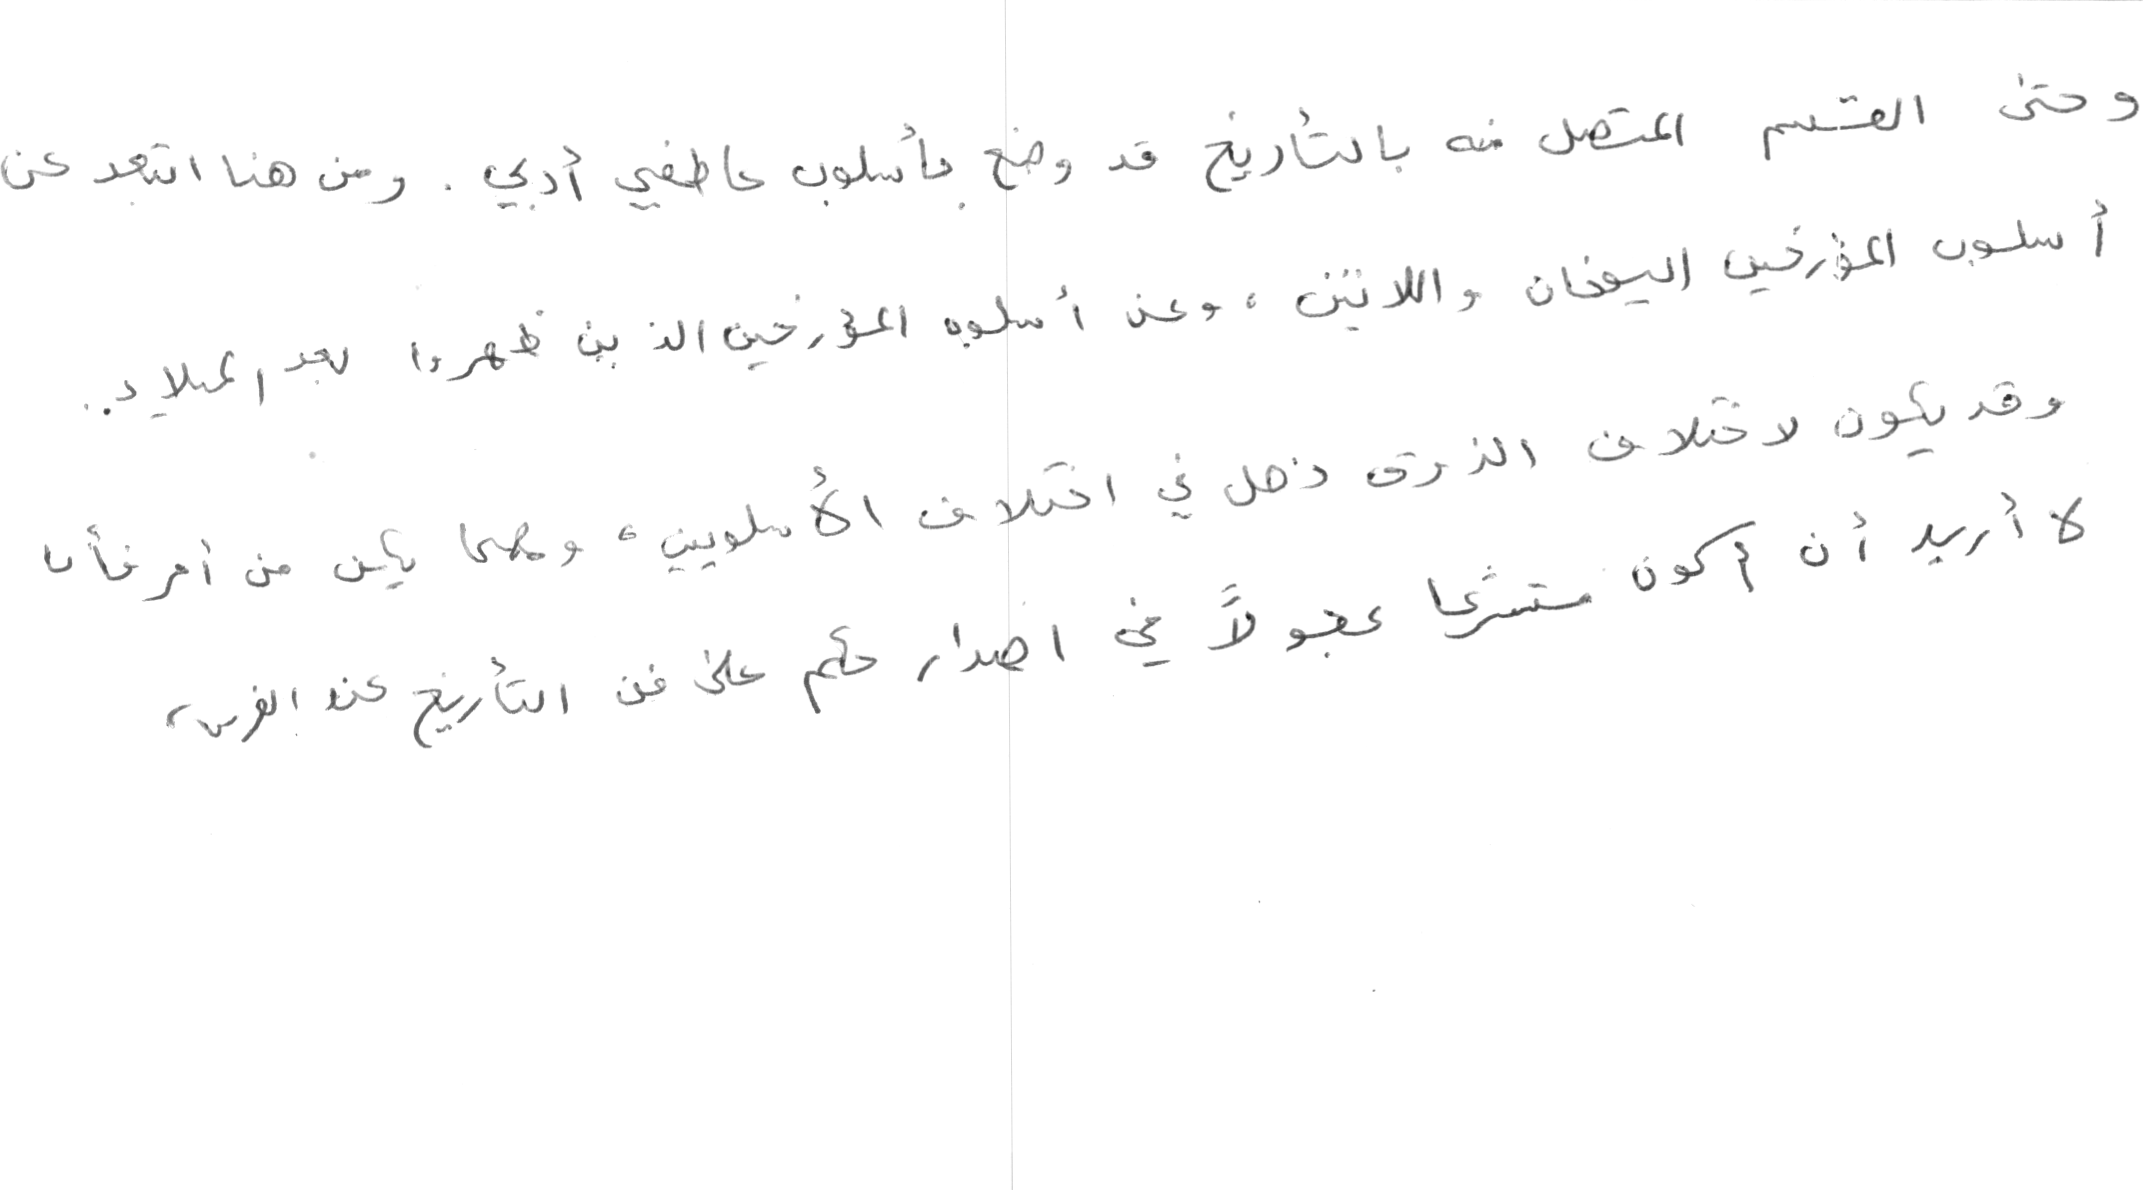 وحتى القسم المتصل منه بالتأريخ قد وضع بأسلوب عاطفي أدبي. ومن هنا ابتعد عن
أسلوب المؤرخين اليونان واللاتين، وعن أسلوب المؤرخين الذين ظهروا بعد الميلاد..
وقد يكون لاختلاف الذوق دخل في اختلاف الأسلوبين، ومهما يكن من أمر فأنا
لا أريد أن أكون متسرعا عجولاً في اصدار حكم على فن التأريخ عند الفرس،